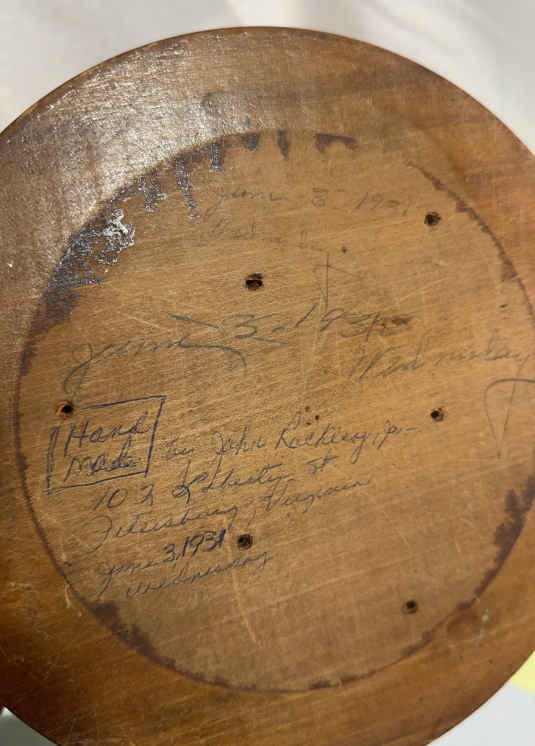 June 3 - 1931
June 3 - 1931
Wednesday
Hand
Made
by John Rackley, Jr -
103 St
Petersburg, Virginia
June 3, 1931
Wednesday